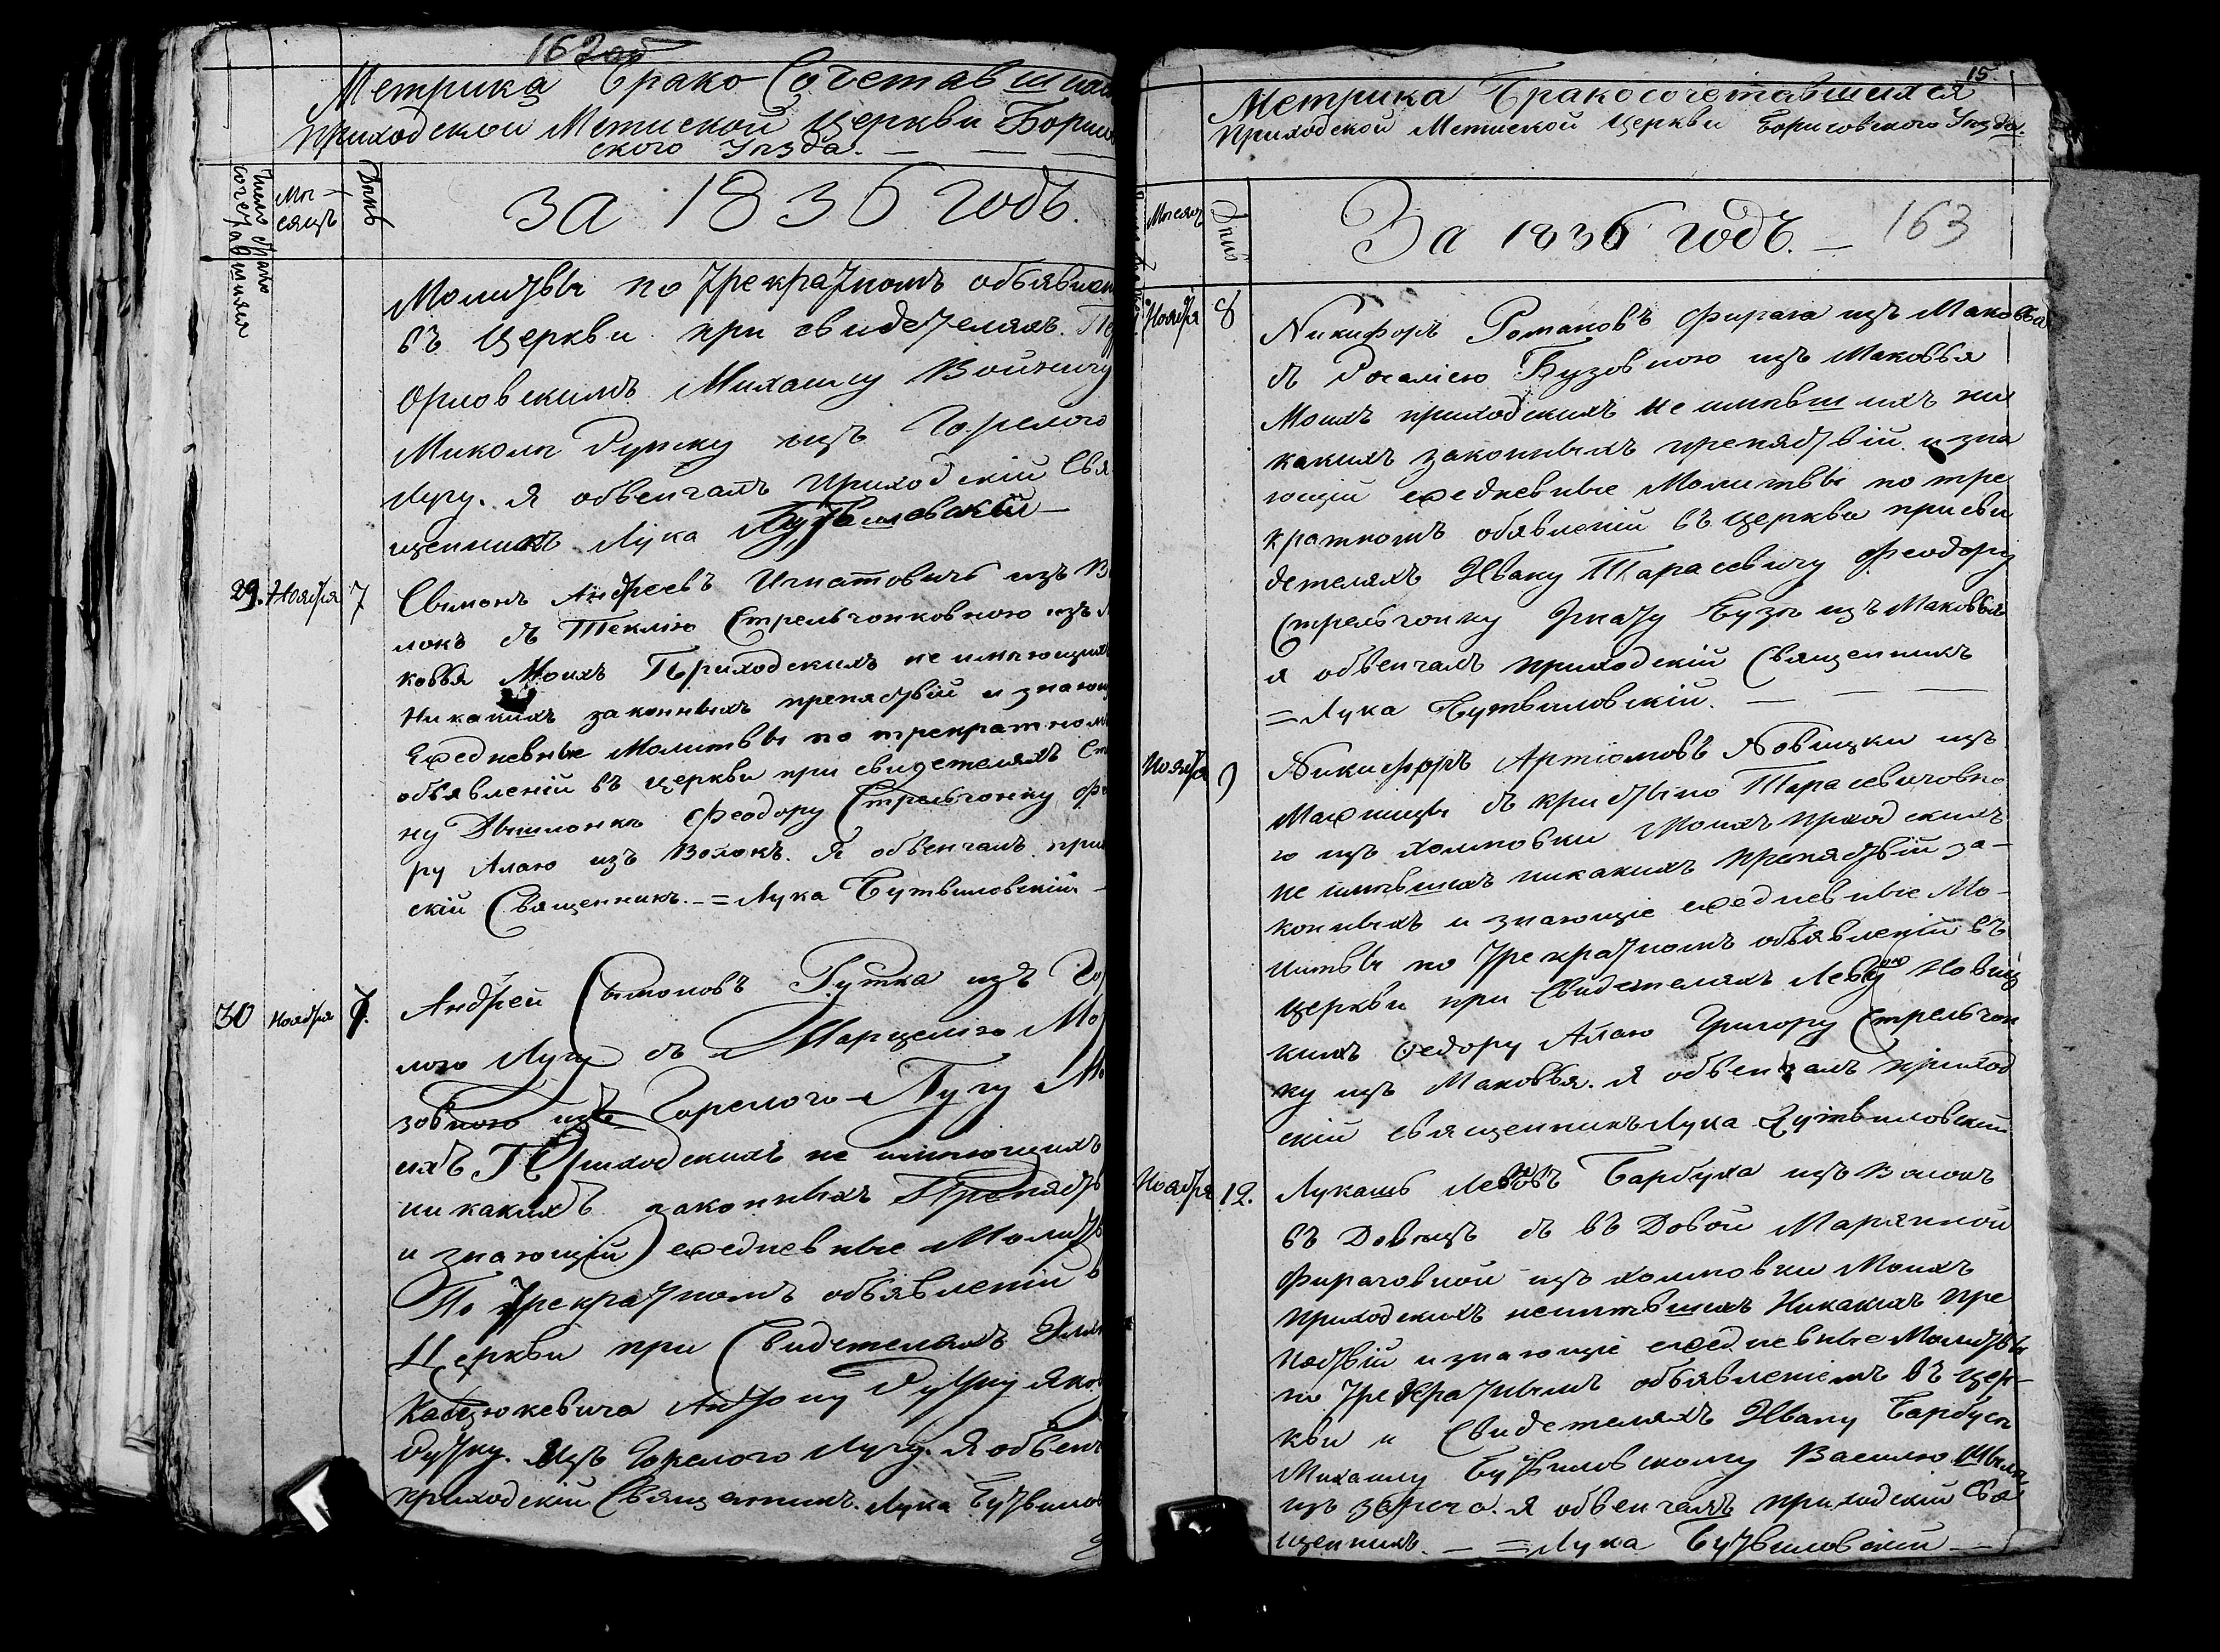 162 об
Метрика Брако-Сочетавшихся
приходской Метиской Церкви Борисов
ского Уезда.
число брако сочетавшихся
Ме-
сяцъ
День
За 1836 годъ.
Молитвы по трекратномъ объявлен
въ Церкви при свидетеляхъ.
Орловскимъ Михаилу Войничу
Миколы Рутку изъ Горелого
Лугу. Я обвенчалъ приходскій Свя
щенникъ Лука Бутвиловскій
29. Ноября 7 Сымонъ Андреевъ Игнатовичъ изъ В
локъ съ Теклію Стрельчонковною изъ
ковья Моихъ Приходскихъ не имеющихъ
Никакихъ законныхъ препятствій и знающ
Ежедневные Молитвы по трекратномъ
объявленій въ церкви при свидетеляхъ
ну Дышлонкъ Феодору Стрельчонку
ру Алаю изъ Волокъ. Я обвенчалъ при
скій Священникъ. = Лука Бутвиловскій
30 Ноября 7. Андрей Сымоновъ Рутка изъ Го
лого Лугу съ Марцелію Мо
зовною изъ Горелого Лугу Мо
ихъ Приходскихъ не имеющихъ
никакихъ законныхъ Препятств
и знающій ежедневные Молитв
По трекратномъ объявленій в
Церкви при Свидетеляхъ
Кабцюкевича Антону Рутку Яко
Рутку. Изъ Горелого Лугу. Я обвен
приходскій Священникъ. Лука Бутвилов
15.
Метрика Бракосочетавшихся
Приходской Метиской Церкви Борисовского Уезда.
Месяцъ
Дній
За 1836 годъ. 163
Ноября 8 Никифоръ Романовъ Фирага изъ Маковья
съ Розаліею Бузовною изъ Маковья
Моихъ приходскихъ не имевшихъ ни
какихъ законныхъ препятствій и зна
ющій ежедневные Молитвы по тре
кратномъ обявленій въ церкви при сви
детеляхъ Ивану Тарасевичу Феодору
Стрельчонку Игнату Бузе изъ Маковья
я обвенчалъ приходскій Священникъ
= Лука Бутвиловскій.
Ноября 9 Никифоръ Артіомовъ Новицки изъ
Мажницы съ Кристыною Тарасевичовно
ю изъ Холмовки Моихъ приходскихъ
не имевшихъ никакихъ препятствій за-
конныхъ и знающіе ежедневные Мо-
литвы по трекратномъ объявленій въ
церкви при Свидетеляхъ Новиц
кихъ Федору Алаю Григору Стрельчон
ку изъ Маковья. Я обвенчалъ приход
скій священникъ Лука Бутвиловскій
Ноября 12. Лукашъ Барбуха изъ Волокъ
въ Довецъ съ въ Довой Марянной
Фираговной изъ Холмовки Моихъ
приходскихъ неимевшихъ Никакихъ пре
пятствій и знающіе ежедневные Молитвы
по трекратнымъ объявленіемъ въ цер-
кви и Свидетеляхъ Ивану Барбусе
Михаилу Бутвиловскому Василю
изъ я обвенчалъ приходскій Свя
щенникъ. = Лука Бутвиловскій